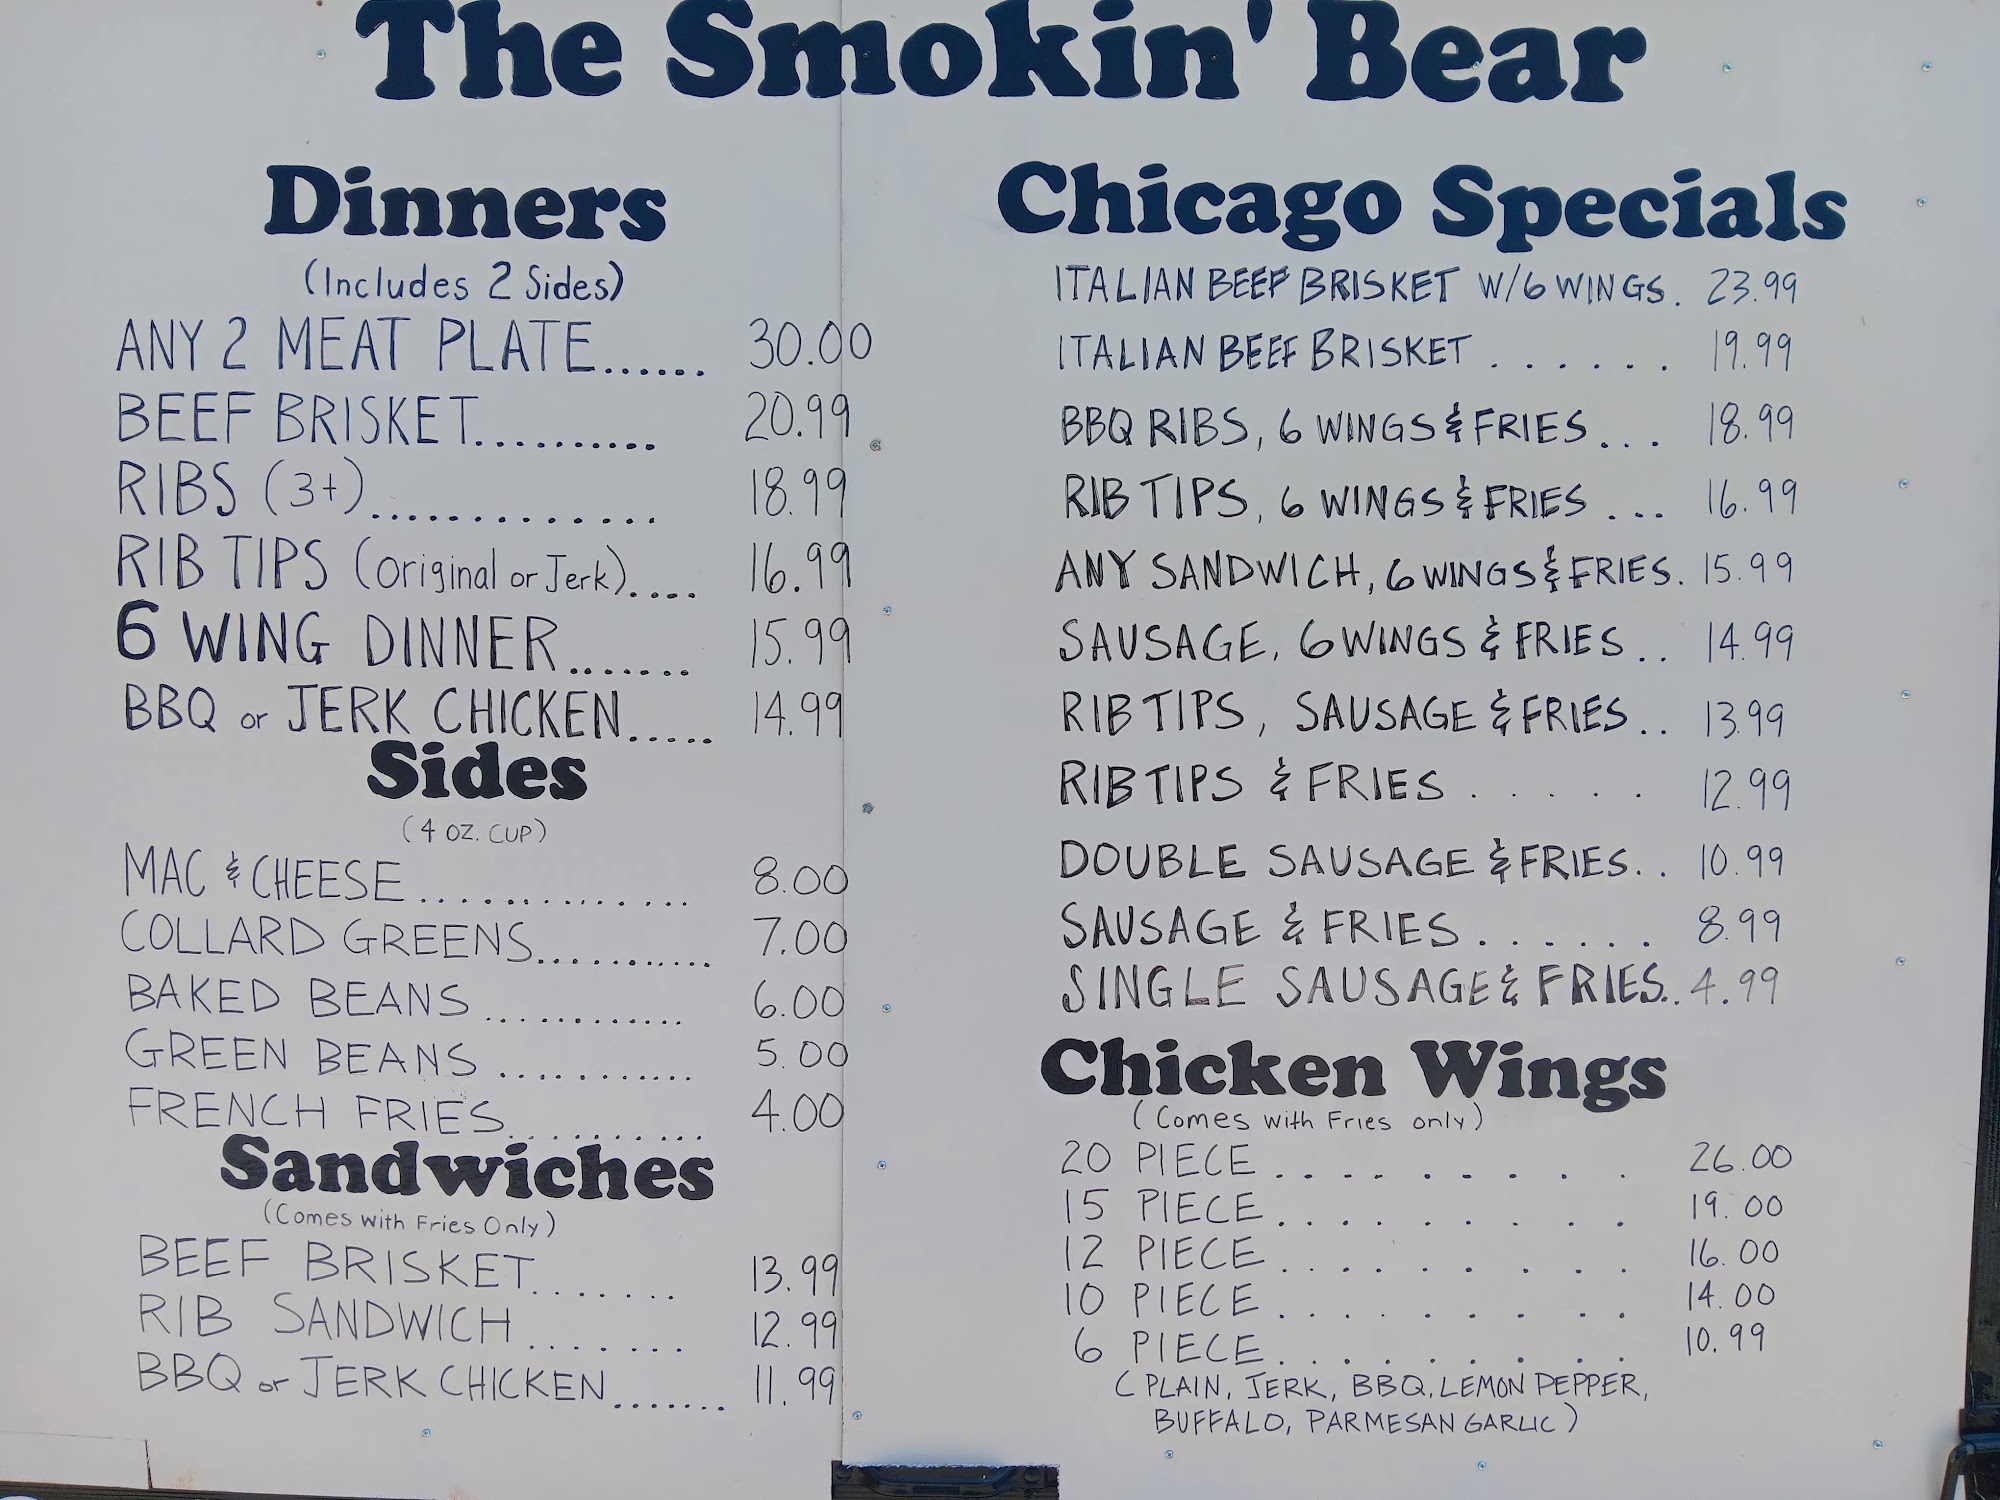 The Smokin' Bear
Dinners
(Includes 2 Sides)
ANY 2 MEAT PLATE...... 30.00
BEEF BRISKET.......... 20.99
RIBS (3+)............. 18.99
RIB TIPS (Original or Jerk).... 16.99
6 WING DINNER....... 15.99
BBQ or JERK CHICKEN..... 14.99
Sides
(4 OZ. CUP)
MAC & CHEESE.............. 8.00
COLLARD GREENS........... 7.00
BAKED BEANS ............ 6.00
GREEN BEANS ........... 5.00
FRENCH FRIES.......... 4.00
Sandwiches
(Comes with Fries Only)
BEEF BRISKET....... 13.99
RIB SANDWICH ....... 12.99
BBQ or JERK CHICKEN ....... 11.99
Chicago Specials
ITALIAN BEEF BRISKET W/6 WINGS. 23.99
ITALIAN BEEF BRISKET ...... 19.99
BBQ RIBS, 6 WINGS & FRIES... 18.99
RIB TIPS, 6 WINGS & FRIES ... 16.99
ANY SANDWICH, 6 WINGS & FRIES. 15.99
SAUSAGE, 6 WINGS & FRIES.. 14.99
RIB TIPS, SAUSAGE & FRIES.. 13.99
RIB TIPS & FRIES ..... 12.99
DOUBLE SAUSAGE & FRIES.. 10.99
SAUSAGE & FRIES ...... 8.99
SINGLE SAUSAGE & FRIES.. 4.99
Chicken Wings
(Comes with Fries only)
20 PIECE ......... 26.00
15 PIECE ......... 19.00
12 PIECE ......... 16.00
10 PIECE ......... 14.00
6 PIECE .......... 10.99
(PLAIN, JERK, BBQ, LEMON PEPPER,
BUFFALO, PARMESAN GARLIC)